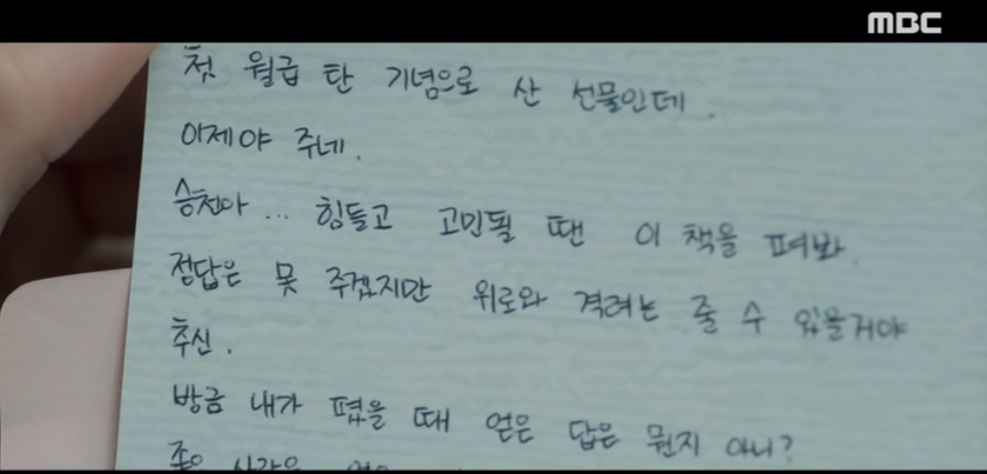 MBC
첫 월급 탄 기념으로 산 선물인데.
이제야 주네.
승천아... 힘들고 고민될 땐 이 책을 펴봐.
정답은 못 주겠지만 위로와 격려는 줄 수 있을거야
추신.
방금 내가 폈을 때 얻은 답은 뭔지 아니?